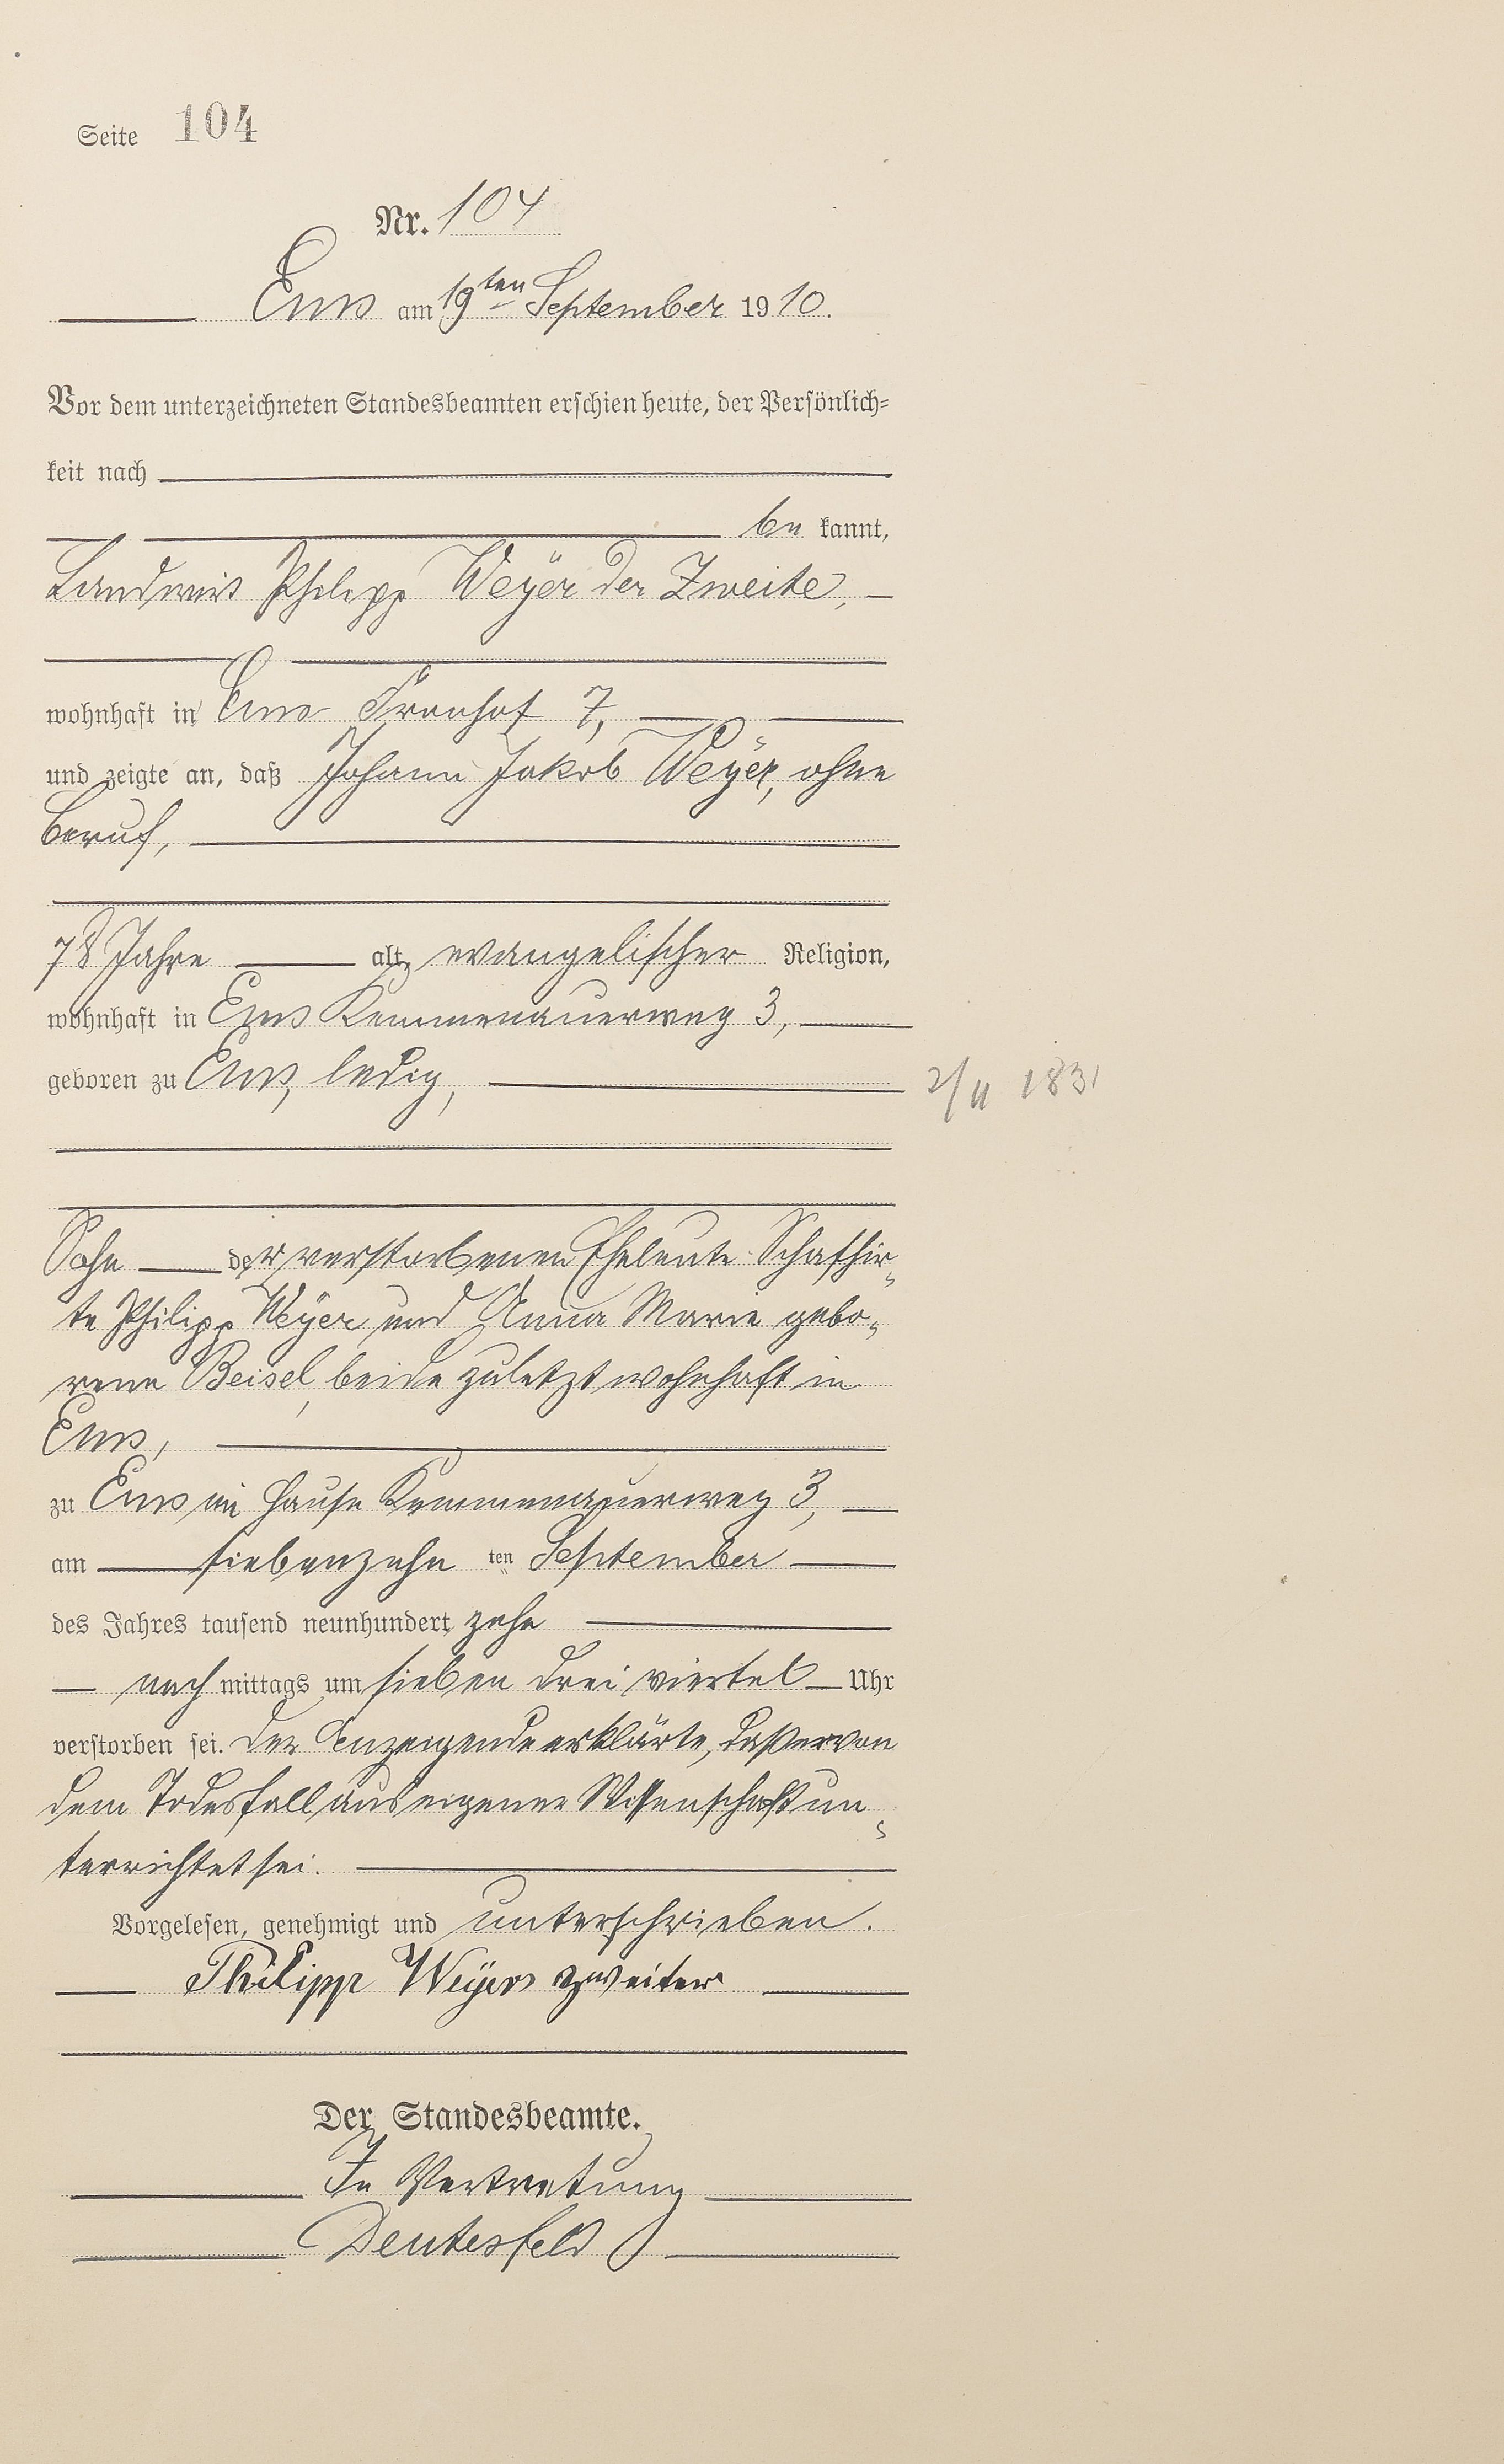 Seite 104
Nr. 104
Ems am 19ten September 1910.
Vor dem unterzeichneten Standesbeamten erschien heute, der Persönlich=
keit nach
be kannt,
Landwirt Philipp Weÿer der Zweite,
wohnhaft in Ems Fronhof 7,
und zeigte an, daß Johann Jakob Weÿer, ohne
Beruf,
78 Jahre alt, evangelischer Religion,
wohnhaft in Ems Kemmenauerweg 3,
geboren zu Ems, ledig,
2/11 1831
Sohn der verstorbenen Eheleute Schafhir=
te Philipp Weÿer und Anna Marie gebo=
rene Beisel, beide zuletzt wohnhaft in
Ems,
zu Ems im Hause Kemmenauerweg 3,
am siebenzehn ten September
des Jahres tausend neunhundert zehn
nach mittags um sieben drei viertel Uhr
verstorben sei. Der Anzeigende erklärte, daß er von
dem Todesfall aus eigener Wissenschaft un=
terrichtet sei.
Vorgelesen, genehmigt und unterschrieben.
Philipp Weÿer zweiter
Der Standesbeamte.
In Vertretung
Deutesfeld